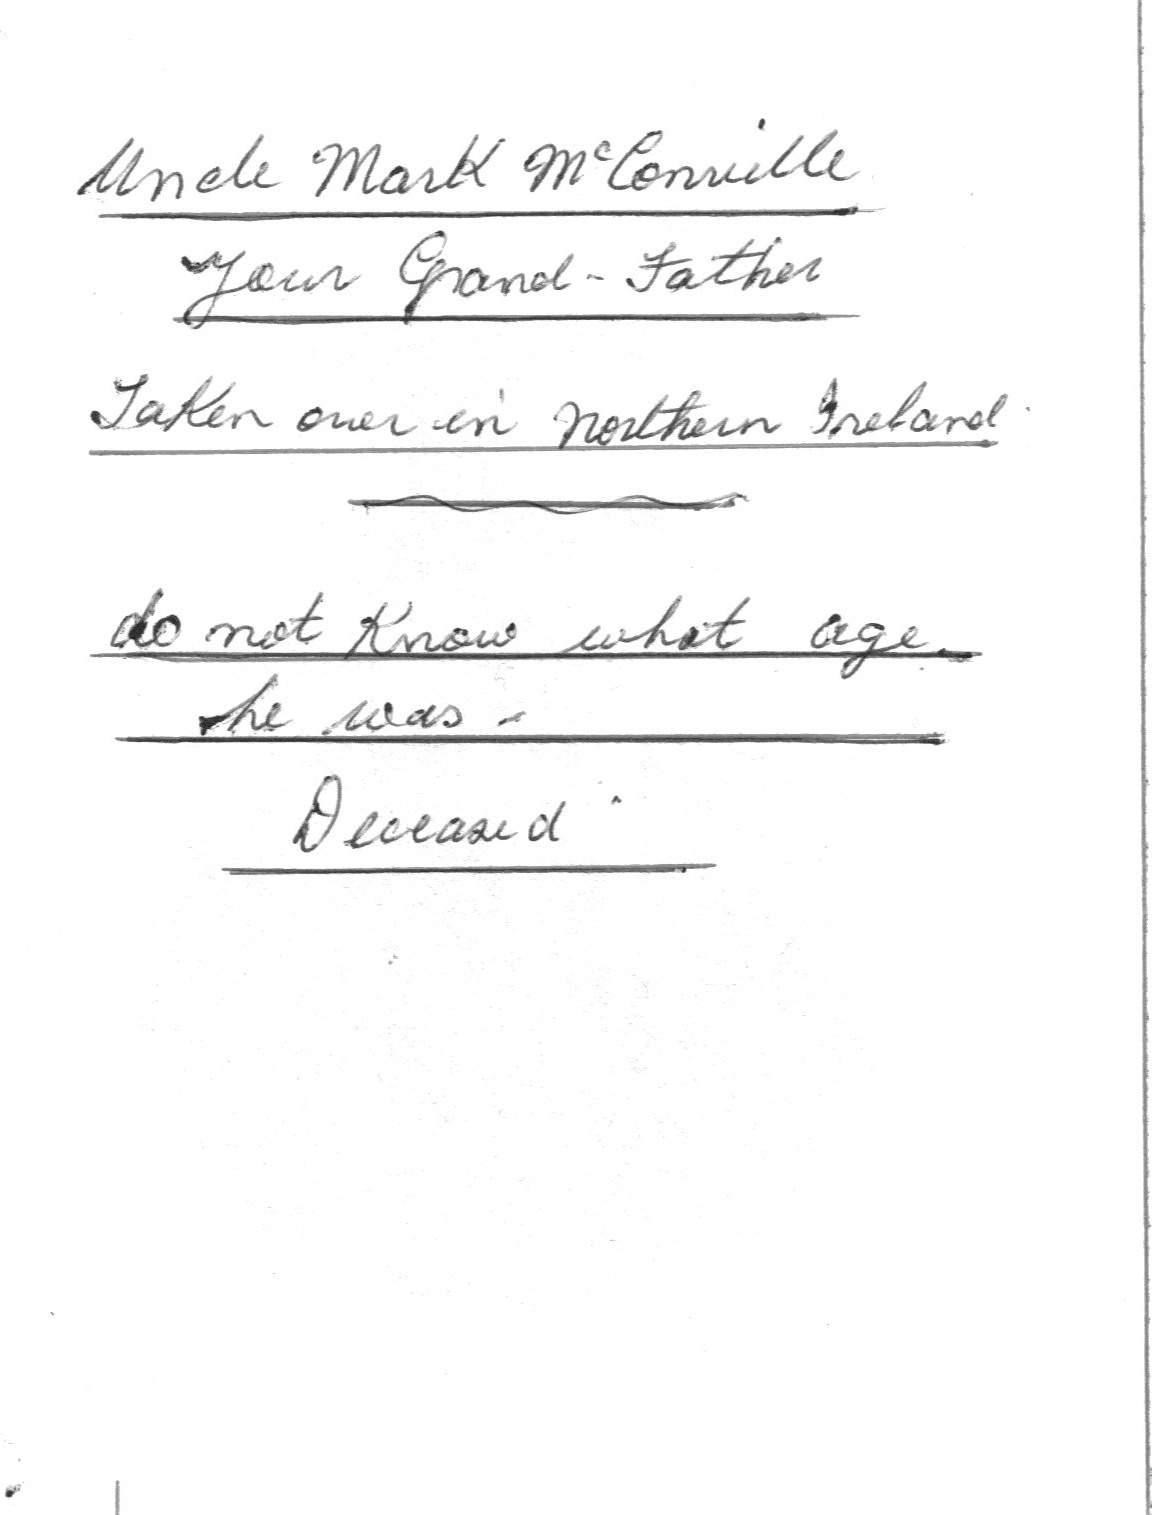 Uncle Mark McConville
Your Grand-Father
Taken over in Northern Ireland.
do not Know what age
he was -
Deceased